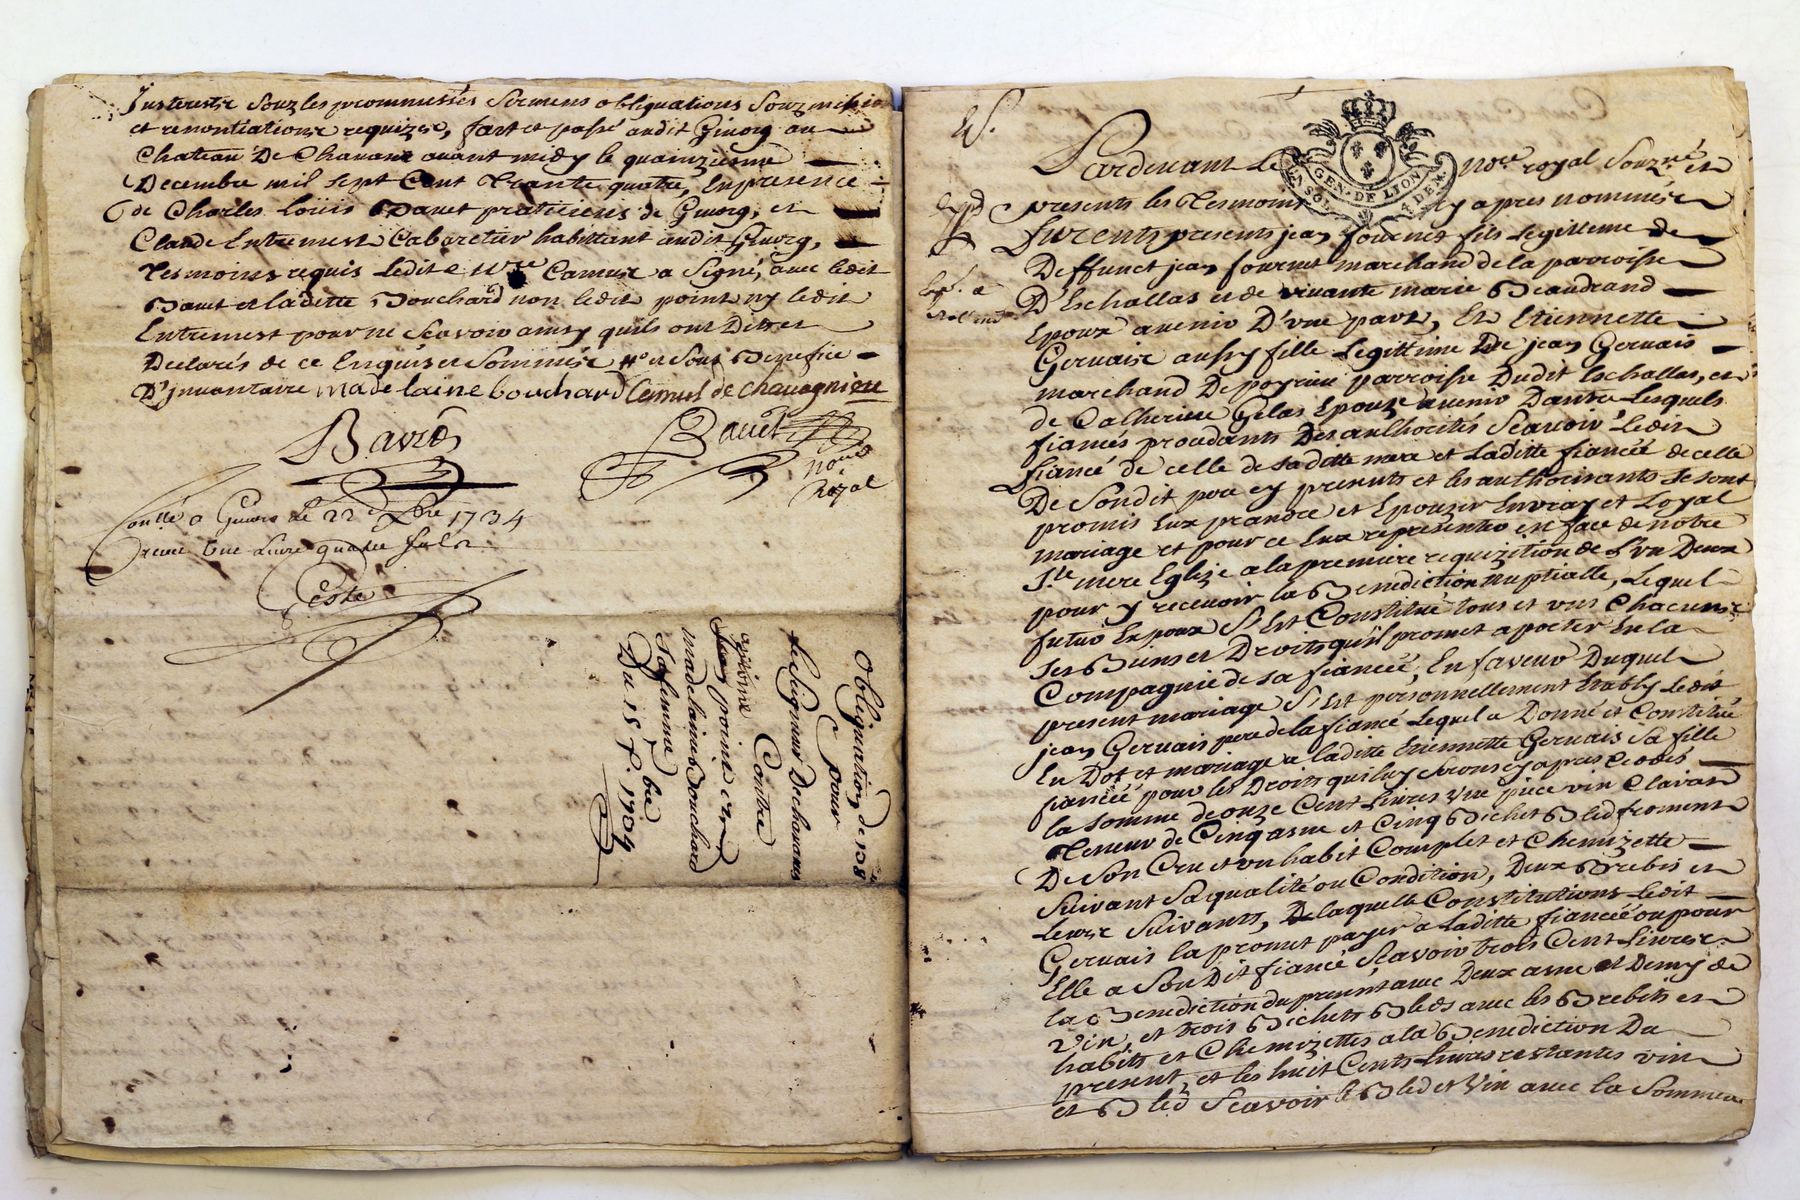 Interests souz les prommesses sermens obligations souzmission
et renontiations requizes, fait et passé audit Givorg au
Chateau De Chavane avant midy le quainzieme
Decembre mil sept Cent Trante quatre, En presence
de Charles Loüis Bavet praticiens de Givorg, et
Claude Entremest Cabaretier habittant audit Givorg,
Tesmoins requis Ledit Camus a Signé, avec ledit
Bavet et laditte Bouchard non ledit point ny ledit
Entremest pour ne Scavoir ainsy quils ont Dit et
Declarés de ce Enquis et Sommés et Sous Benefice
D'Jnvantaire madelaine bouchard Camus de Chavagnieu
Bavet
Bavet
nore
Royal
Conllé a Givors Le 22 Xbre 1734
receu une Livre quatre sols
Teste
Obligation de 138
pour
Le Seigneur De chavannes
Contre
antoine
point et
madelaine Bouchard
Sa femme
Du 15 Xbre 1734
Pardevant Le nore royal Souzné et
GEN. DE LYON
presents les Tesmoins cy apres nommés
Exp
furents presents jean fournet fils Legitteme de
Deffunct jean fournet marchand de la parroisse
D'Eschallas et de vivante marie Beaudrand
Epoux avenir D'vne part, Et Etiennette
Gervais aussy fille Legittime De jean Gervais
marchand De poyrieu parroisse Dudit Eschallas, et
de Catherine Gelas Epouze avenir Dautre Lesquels
fiancés procedants Des authorités Scavoir Ledit
fiancé de celle de saditte mere et Laditte fiancée de celle
De Sondit pere cy presents et les authorisants se sont
promis Eux prandre et Epouzer En vray et Loyal
mariage et pour ce Eux representer en face de notre
Ste mere Eglize a la premiere requizition de L'vn Deux
pour y recevoir la Benediction nuptialle, Lequel
futur Epoux S'est Constitué tous et vns Chacuns
ses Biens et Droits qu'il promet aporter En la
Compagnie de sa fiancée, En faveur Duquel
present mariage S'est personnellement Etably Ledit
jean Gervais pere de la fiancé Lequel a Donné et Constitué
En Dot et mariage a laditte Etiennette Gervais Sa fille
fiancée pour les Droits qui luy seront cy apres Cedés
la somme de onze Cent Livres vne piece vin Clavard
Teneur de Cinq asne et Cinq Bichet Bled froment
De Son Cru et vn habit Complet et Chemizette
Suivant Sa qualité ou Condition, Deux Brebis et
Leurs Suivants, De laquelle Constitutions Ledit
Gervais la promet payer a laditte fiancée ou pour
Elle a Son Dit fiancé Scavoir trois Cent Livres
la Benediction du present avec Deux asne et Demy de
vin, et trois Bichets Bleds avec les Brebits et
habits et Chemizettes a la Benediction Du
present, et les huit Cents Livres restantes vin
et Bled Scavoir le Bled et Vin avec la Somme